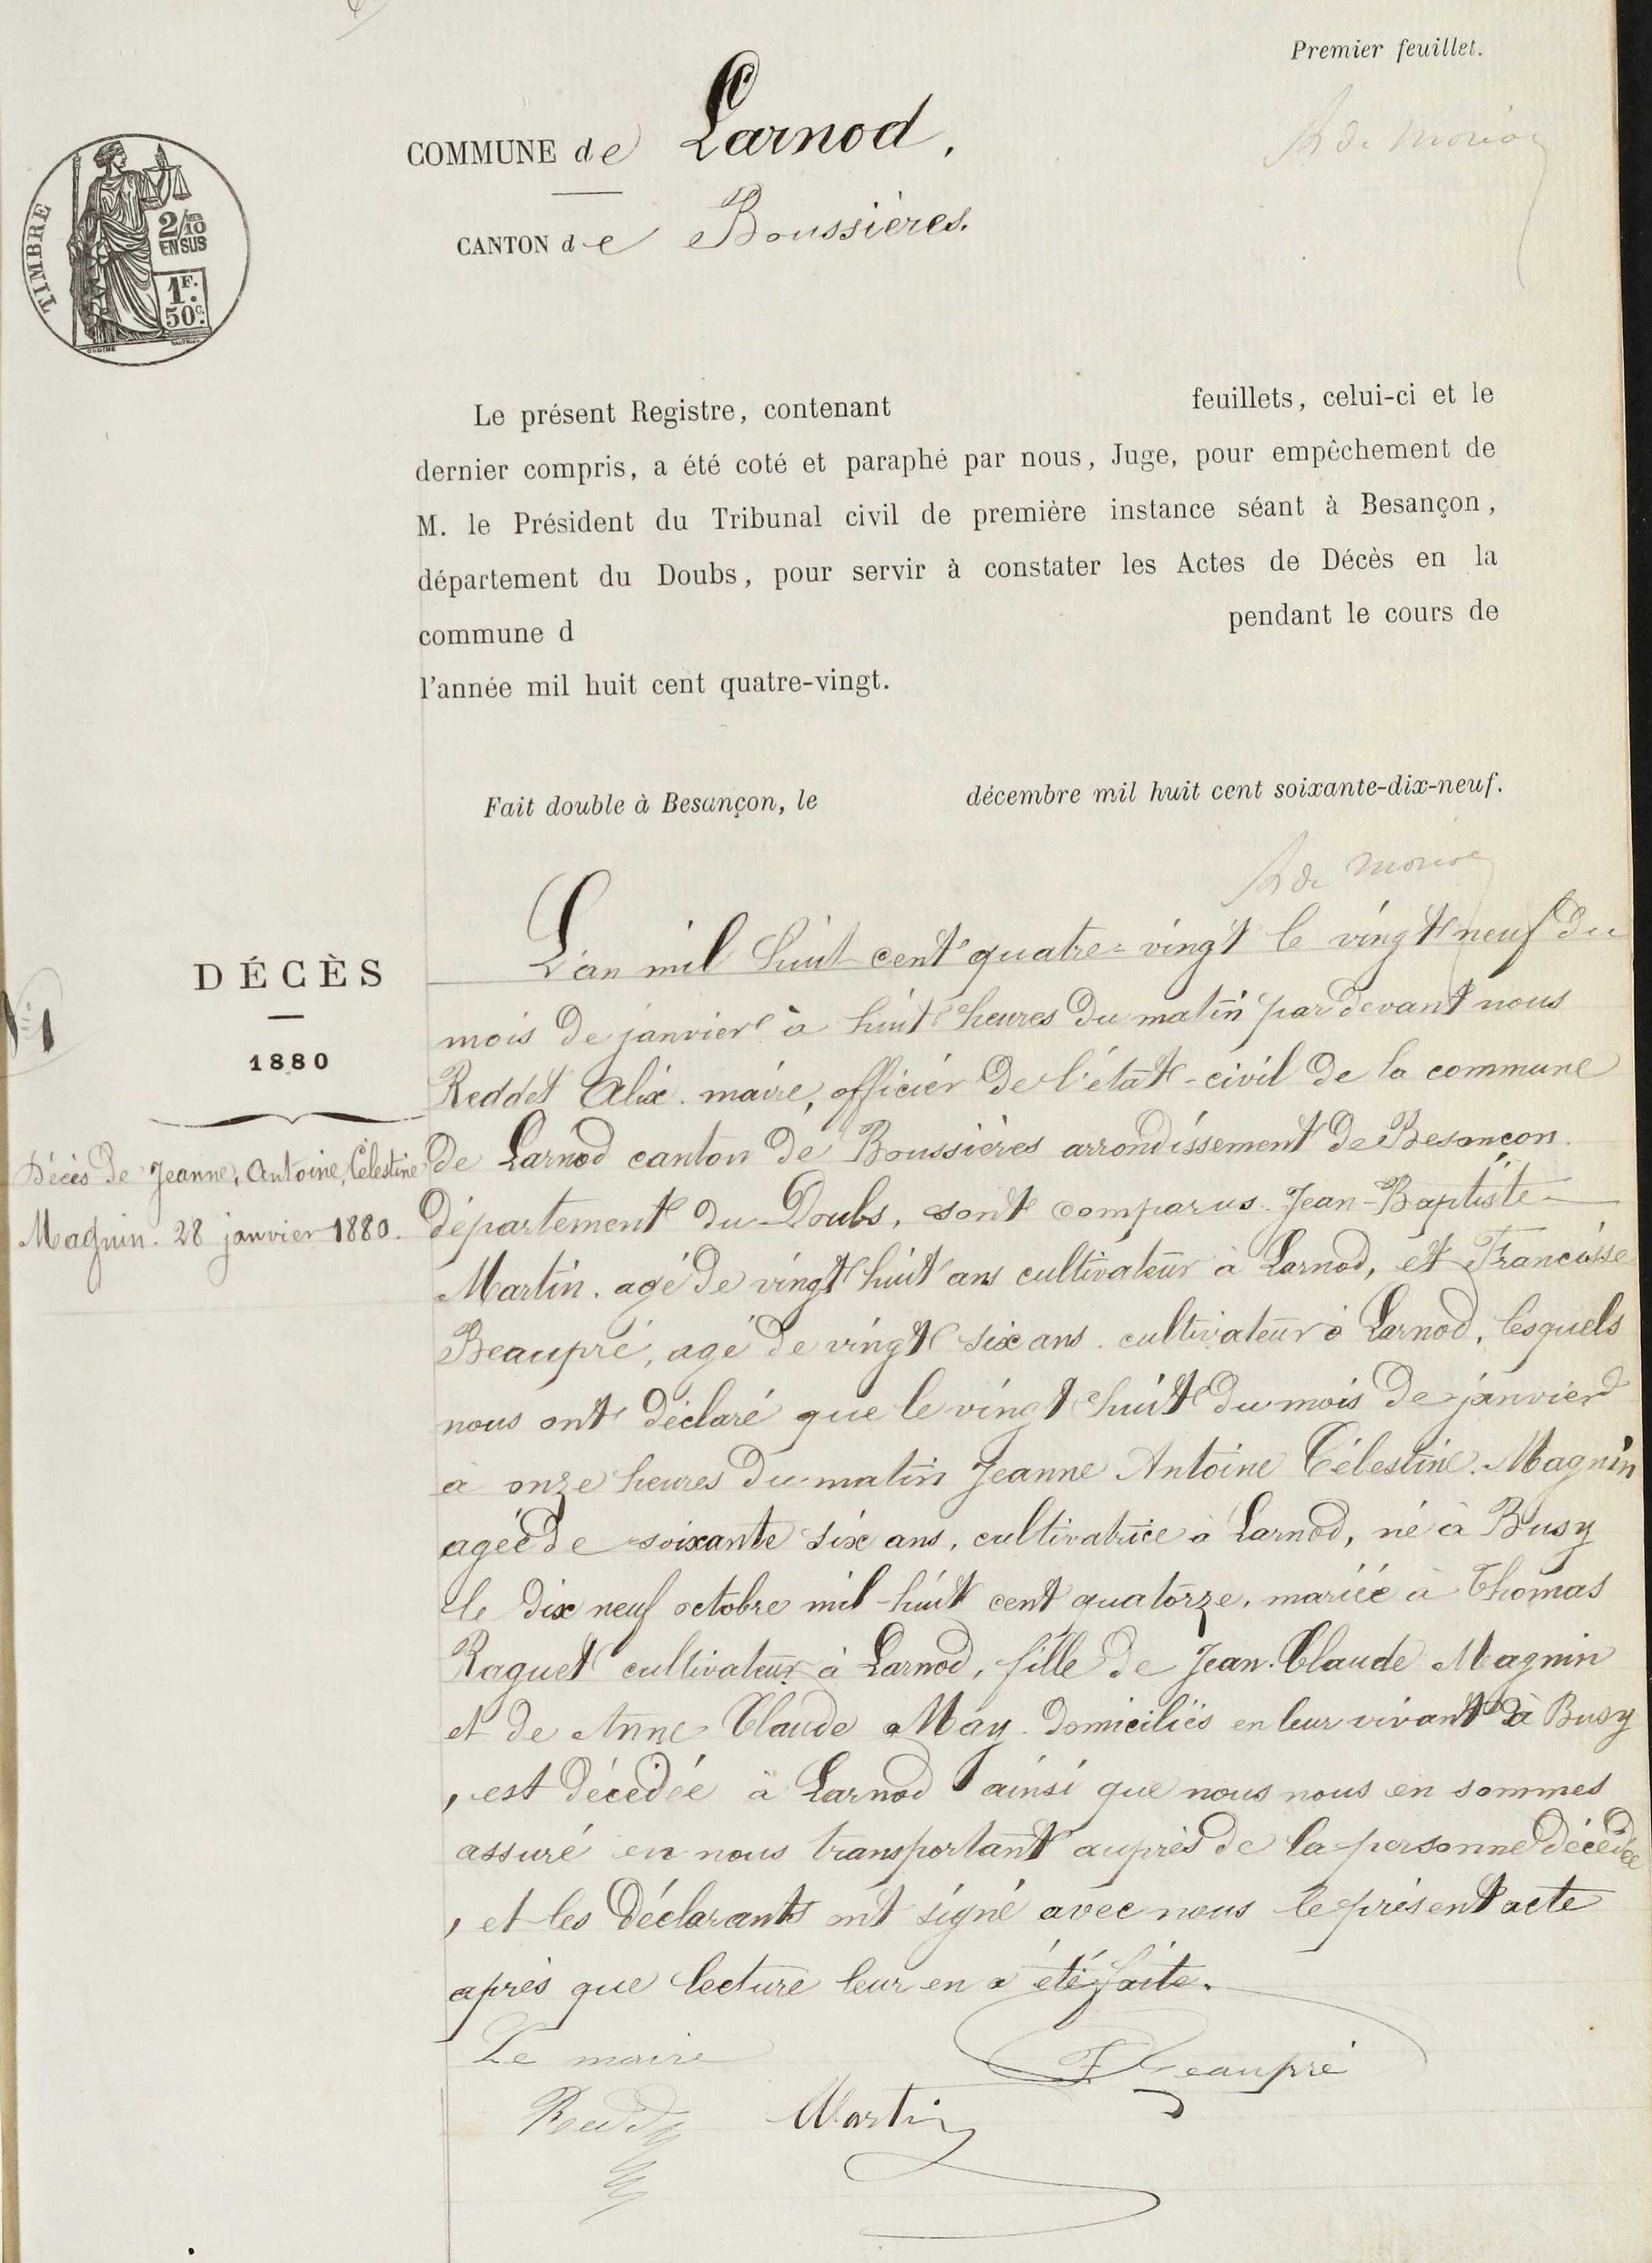 Premier feuillet.
COMMUNE de Larnod.
CANTON de Boussières.
TIMBRE
2/10
EN SUS
1F.
50c.
Le présent Registre, contenant feuillets, celui-ci et le
dernier compris, a été coté et paraphé par nous, Juge, pour empêchement de
M. le Président du Tribunal civil de première instance séant à Besançon,
département du Doubs, pour servir à constater les Actes de Décès en la
commune d pendant le cours de
l'année mil huit cent quatre-vingt.
Fait double à Besançon, le décembre mil huit cent soixante-dix-neuf.
DÉCÈS
N° 1
1880
Décès de Jeanne, Antoine, Célestine
Magnin. 28 janvier 1880.
L'an mil huit cent quatre-vingt le vingt neuf du
mois de janvier à huit heures du matin par devant nous
Reddet Alix. maire, officier de l'état-civil de la commune
de Larnod canton de Boussières arrondissement de Besançon.
département du Doubs, sont comparus. Jean-Baptiste
Martin. agé de vingt huit ans cultivateur à Larnod, et Francoisse
Beaupré, agé de vingt six ans. cultivateur à Larnod, lesquels
nous ont déclaré que le vingt huit du mois de janvier
à onze heures du matin Jeanne Antoine Célestine. Magnin
agée de soixante six ans, cultivatrice à Larnod, né à Busy
le dix neuf octobre mil-huit cent quatorze, mariée à Thomas
Raguet cultivateur à Larnod, fille de Jean-Claude Magnin
et de Anne-Claude May. domiciliés en leur vivant à Busy
, est décédée à Larnod ainsi que nous nous en sommes
assuré en nous transportant auprès de la personne décédée
, et les déclarants ont signé avec nous le présent acte
après que lecture leur en a été faite.
Le maire
F Beaupré
Martin